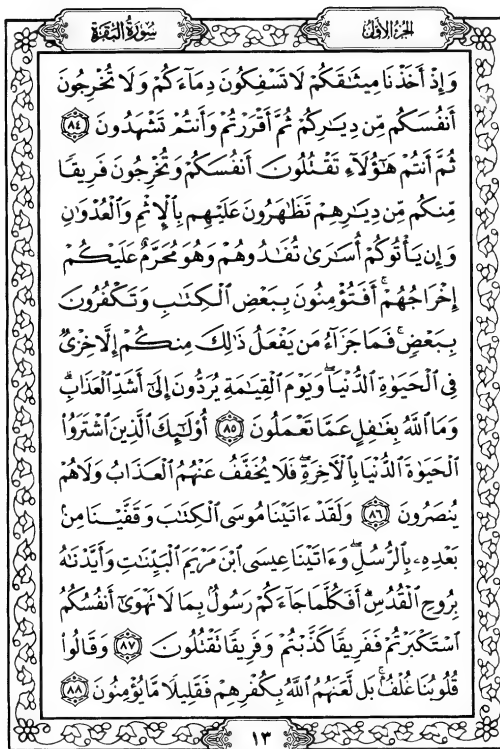 سورة البقرة الجزء الأول
وَإِذْ أَخَذْنَا مِيثَٰقَكُمْ لَا تَسْفِكُونَ دِمَآءَكُمْ وَلَا تُخْرِجُونَ
أَنفُسَكُم مِّن دِيَٰرِكُمْ ثُمَّ أَقْرَرْتُمْ وَأَنتُمْ تَشْهَدُونَ ٨٤
ثُمَّ أَنتُمْ هَٰٓؤُلَآءِ تَقْتُلُونَ أَنفُسَكُمْ وَتُخْرِجُونَ فَرِيقًا
مِّنكُم مِّن دِيَٰرِهِمْ تَظَٰهَرُونَ عَلَيْهِم بِٱلْإِثْمِ وَٱلْعُدْوَٰنِ
وَإِن يَأْتُوكُمْ أُسَٰرَىٰ تُفَٰدُوهُمْ وَهُوَ مُحَرَّمٌ عَلَيْكُمْ
إِخْرَاجُهُمْ ۚ أَفَتُؤْمِنُونَ بِبَعْضِ ٱلْكِتَٰبِ وَتَكْفُرُونَ
بِبَعْضٍ ۚ فَمَا جَزَآءُ مَن يَفْعَلُ ذَٰلِكَ مِنكُمْ إِلَّا خِزْىٌ
فِى ٱلْحَيَوٰةِ ٱلدُّنْيَا ۖ وَيَوْمَ ٱلْقِيَٰمَةِ يُرَدُّونَ إِلَىٰٓ أَشَدِّ ٱلْعَذَابِ ۗ
وَمَا ٱللَّهُ بِغَٰفِلٍ عَمَّا تَعْمَلُونَ ٨٥ أُو۟لَٰٓئِكَ ٱلَّذِينَ ٱشْتَرَوُا۟
ٱلْحَيَوٰةَ ٱلدُّنْيَا بِٱلْءَاخِرَةِ ۖ فَلَا يُخَفَّفُ عَنْهُمُ ٱلْعَذَابُ وَلَا هُمْ
يُنصَرُونَ ٨٦ وَلَقَدْ ءَاتَيْنَا مُوسَى ٱلْكِتَٰبَ وَقَفَّيْنَا مِنۢ
بَعْدِهِۦ بِٱلرُّسُلِ ۖ وَءَاتَيْنَا عِيسَى ٱبْنَ مَرْيَمَ ٱلْبَيِّنَٰتِ وَأَيَّدْنَٰهُ
بِرُوحِ ٱلْقُدُسِ ۗ أَفَكُلَّمَا جَآءَكُمْ رَسُولٌۢ بِمَا لَا تَهْوَىٰٓ أَنفُسُكُمُ
ٱسْتَكْبَرْتُمْ فَفَرِيقًا كَذَّبْتُمْ وَفَرِيقًا تَقْتُلُونَ ٨٧ وَقَالُوا۟
قُلُوبُنَا غُلْفٌۢ ۚ بَل لَّعَنَهُمُ ٱللَّهُ بِكُفْرِهِمْ فَقَلِيلًا مَّا يُؤْمِنُونَ ٨٨
١٣